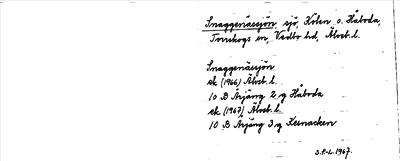 Snaggenässjön, sjö, Kölen o. Håboda,
Torrskogs sn, Vedbo hd, Älvsb. l.
Snaggenässjön
ek (1966) Älvsb. l.
10 B Årjäng 2 g Håboda
ek (1967) Älvsb. l.
10 B Årjäng 3 g Kesnacken
S.P-L. 1967.